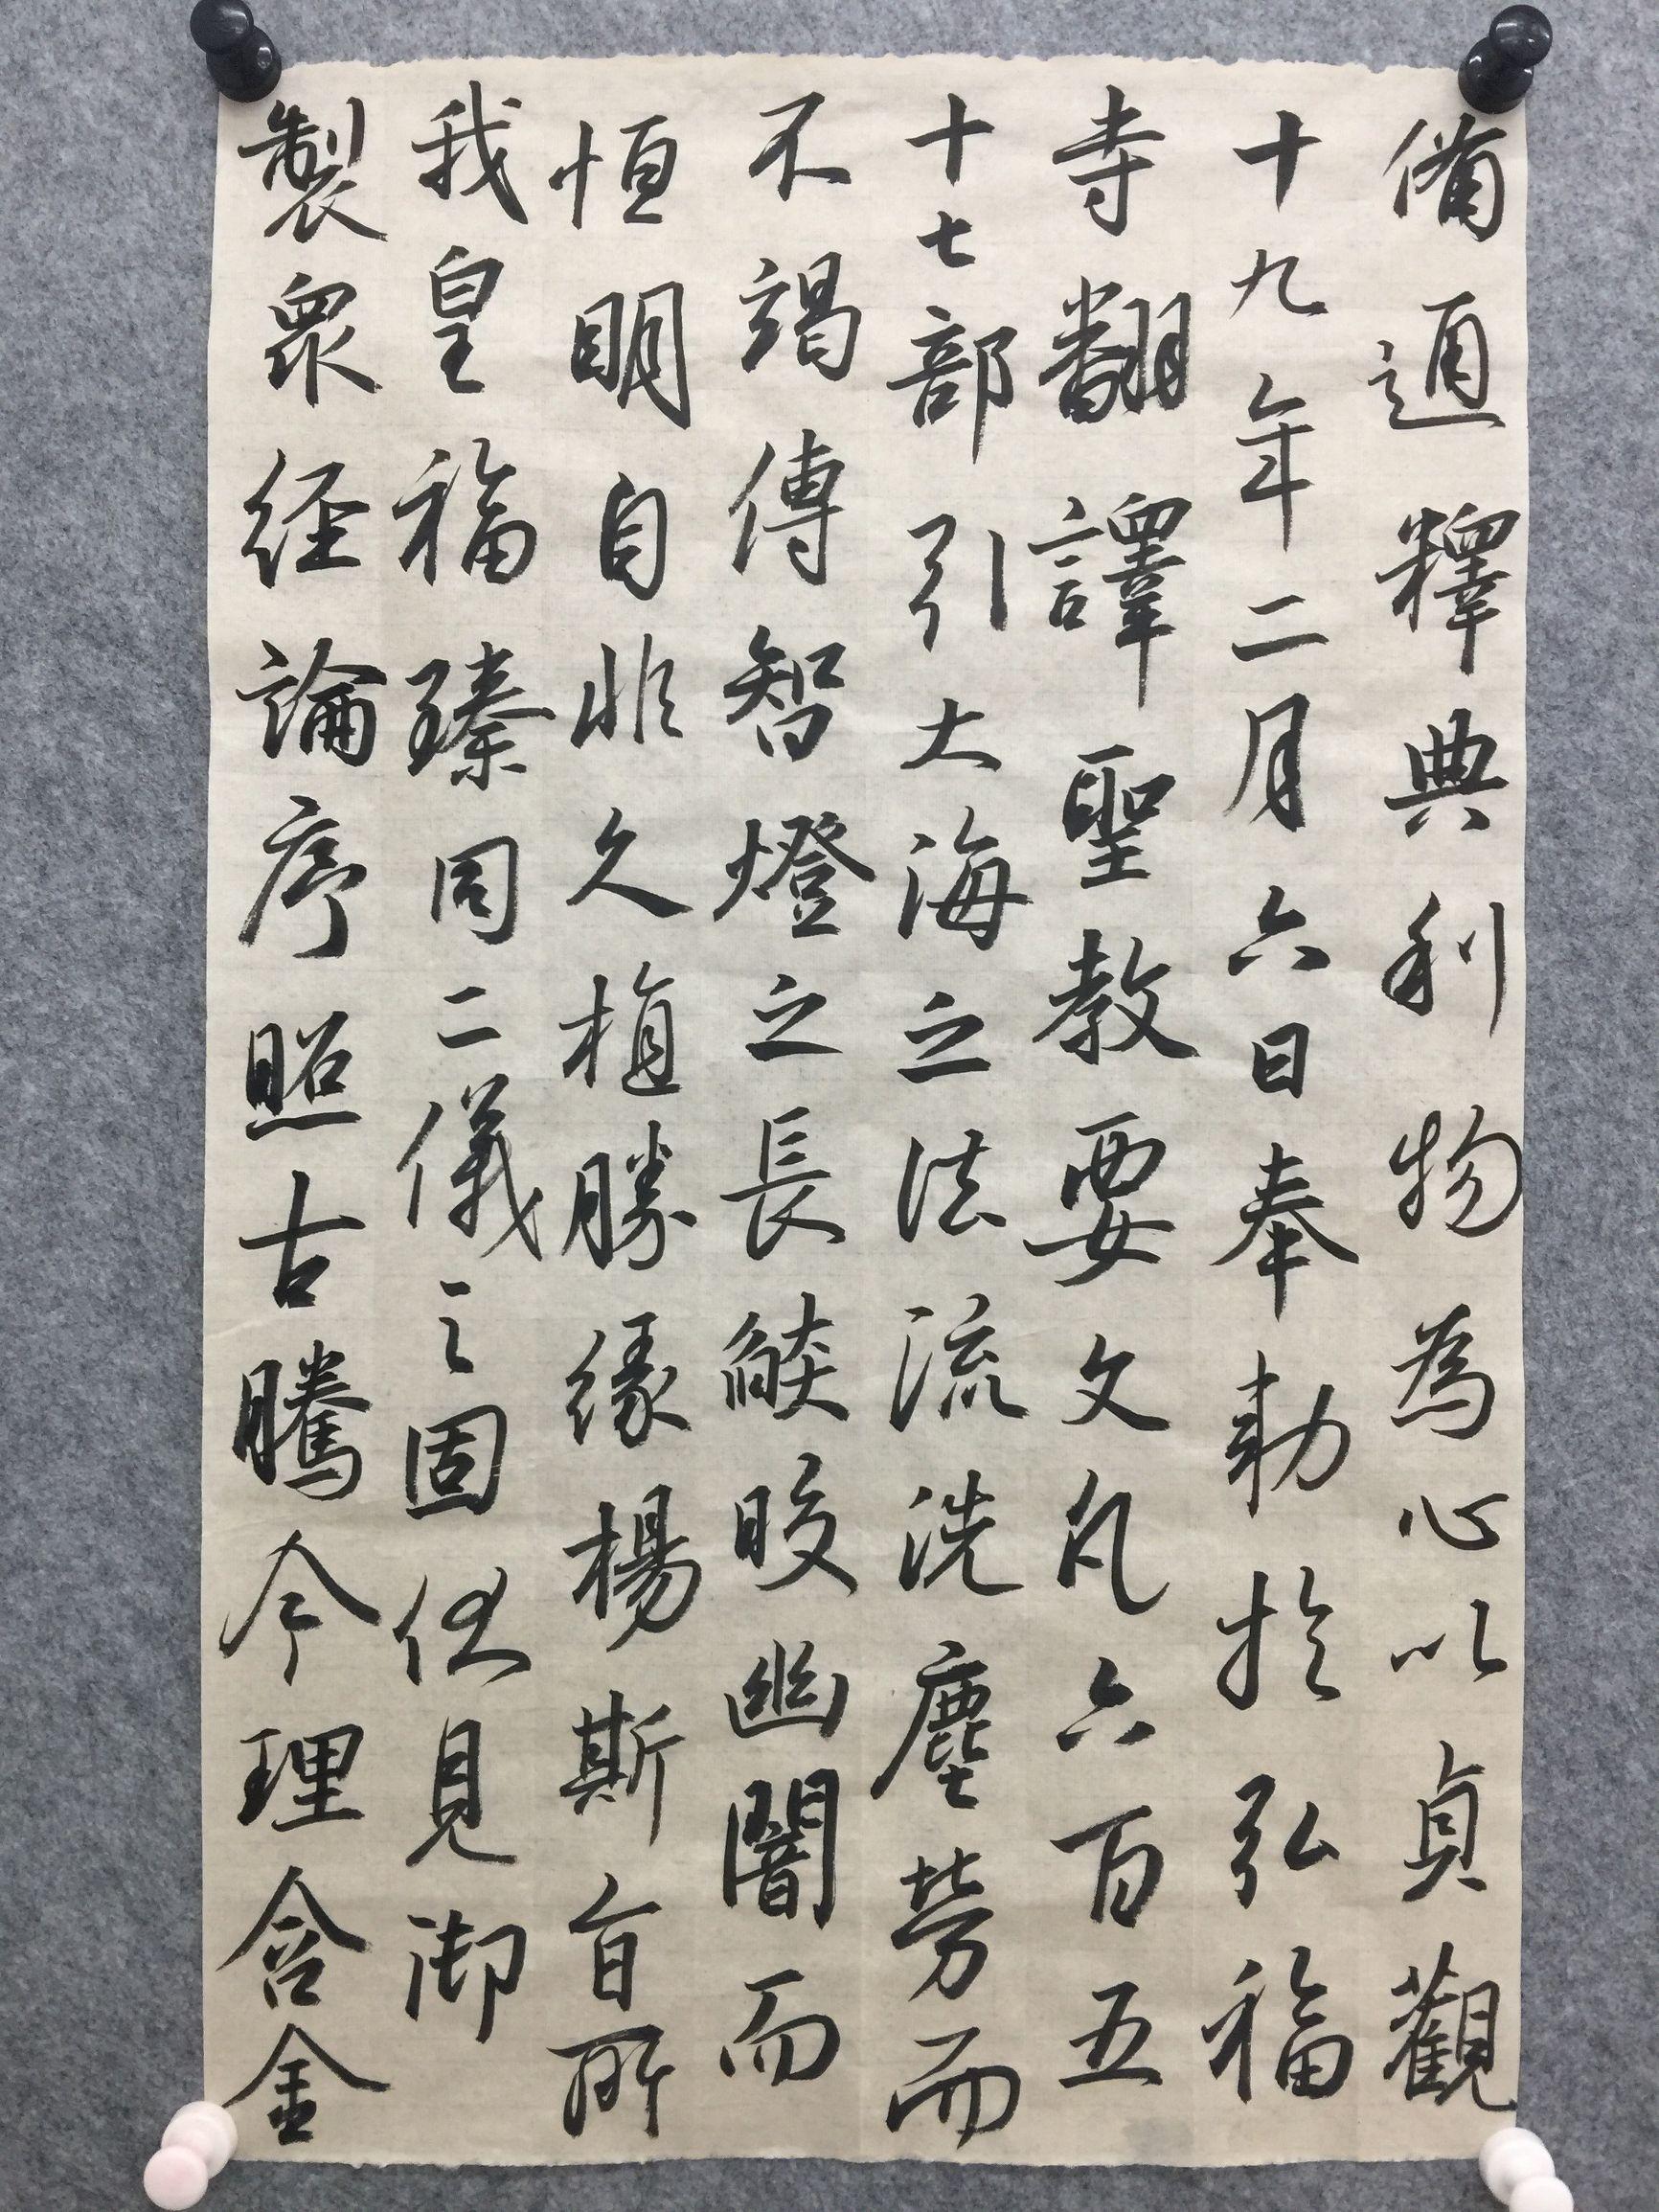 備通釋典利物為心以貞觀
十九年二月六日奉勅於弘福
寺翻譯聖教要文凡六百五
十七部引大海之法流洗塵勞而
不竭傳智燈之長燄皎幽闇而
恒明自非久植勝緣楊斯旨所
我皇福臻同二儀之固伏見御
製眾經論序照古騰今理含金